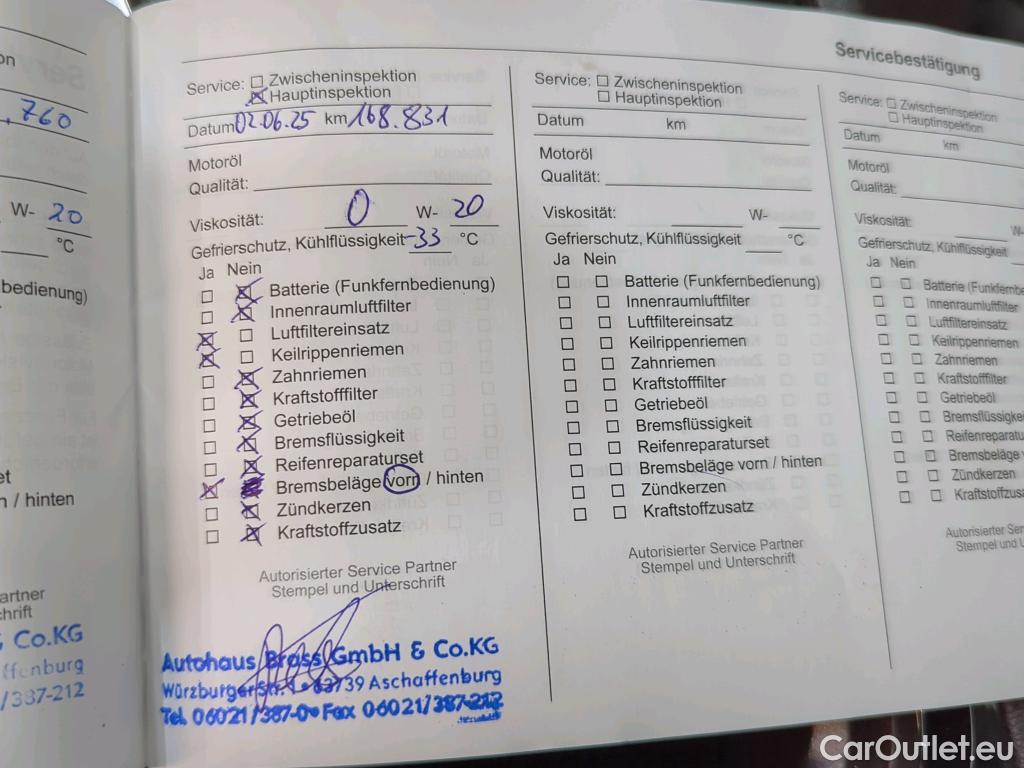 Servicebestätigung
on
.760
W- 20
°C
bedienung)
et
n / hinten
artner
chrift
& Co.KG
ffenburg
/387-212
Service: Zwischeninspektion
Hauptinspektion
Datum 02.06.25 km 168.831
Motoröl
Qualität:
Viskosität: 0 W- 20
Gefrierschutz, Kühlflüssigkeit -33 °C
Ja Nein
Batterie (Funkfernbedienung)
Innenraumluftfilter
Luftfiltereinsatz
Keilrippenriemen
Zahnriemen
Kraftstofffilter
Getriebeöl
Bremsflüssigkeit
Reifenreparaturset
Bremsbeläge vorn / hinten
Zündkerzen
Kraftstoffzusatz
Autorisierter Service Partner
Stempel und Unterschrift
Autohaus Brass GmbH & Co.KG
Würzburger Str. 1 • 63739 Aschaffenburg
Tel. 06021/387-0 • Fax 06021/387-212
Service: Zwischeninspektion
Hauptinspektion
Datum km
Motoröl
Qualität:
Viskosität: W-
Gefrierschutz, Kühlflüssigkeit °C
Ja Nein
Batterie (Funkfernbedienung)
Innenraumluftfilter
Luftfiltereinsatz
Keilrippenriemen
Zahnriemen
Kraftstofffilter
Getriebeöl
Bremsflüssigkeit
Reifenreparaturset
Bremsbeläge vorn / hinten
Zündkerzen
Kraftstoffzusatz
Autorisierter Service Partner
Stempel und Unterschrift
Service: Zwischeninspektion
Hauptinspektion
Datum km
Motoröl
Qualität:
Viskosität: W-
Gefrierschutz, Kühlflüssigkeit
Ja Nein
Batterie (Funkfernbe
Innenraumluftfilter
Luftfiltereinsatz
Keilrippenriemen
Zahnriemen
Kraftstofffilter
Getriebeöl
Bremsflüssigke
Reifenreparatu
Bremsbeläge v
Zündkerzen
Kraftstoffzusa
Autorisierter Ser
Stempel und Unt
CarOutlet.eu